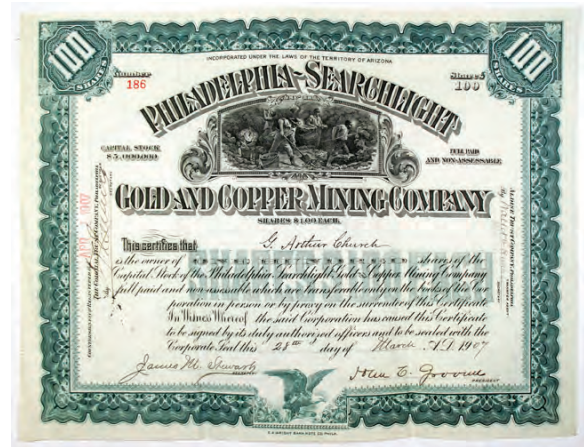 100
SHARES
INCORPORATED UNDER THE LAWS OF THE TERRITORY OF ARIZONA
100
SHARES
Number
186
Shares
100
PHILADELPHIA-SEARCHLIGHT
CAPITAL STOCK
$5,000,000
FULL PAID
AND NON-ASSESSABLE
GOLD AND COPPER MINING COMPANY
SHARES $1.00 EACH.
This certifies that G. Arthur Church
is the owner of ONE HUNDRED shares of the
Capital Stock of the Philadelphia Searchlight Gold & Copper Mining Company
full paid and non-assessable which are transferable only on the books of the Cor
poration in person or by proxy on the surrender of this Certificate
In Witness Whereof the said Corporation has caused this Certificate
to be signed by its duly authorized officers and to be sealed with the
Corporate Seal this 28th day of March A.D. 1907
James M. Stewart
SECRETARY
John E. Groome
PRESIDENT